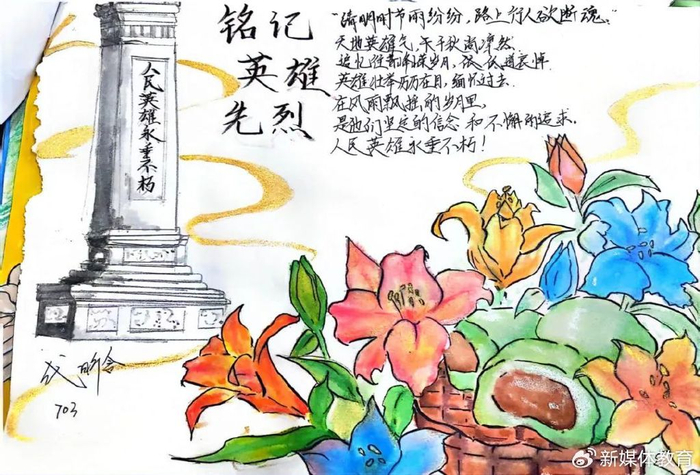 铭记
英雄
先烈
人民英雄永垂不朽
"清明时节雨纷纷，路上行人欲断魂。"
天地英雄气，千秋尚凛然.
追忆往昔岁月，
英雄壮举历历在目，缅忆过去.
在风雨飘摇的岁月里，
是他们坚定的信念和不懈的追求，
人民英雄永垂不朽！
703
新媒体教育